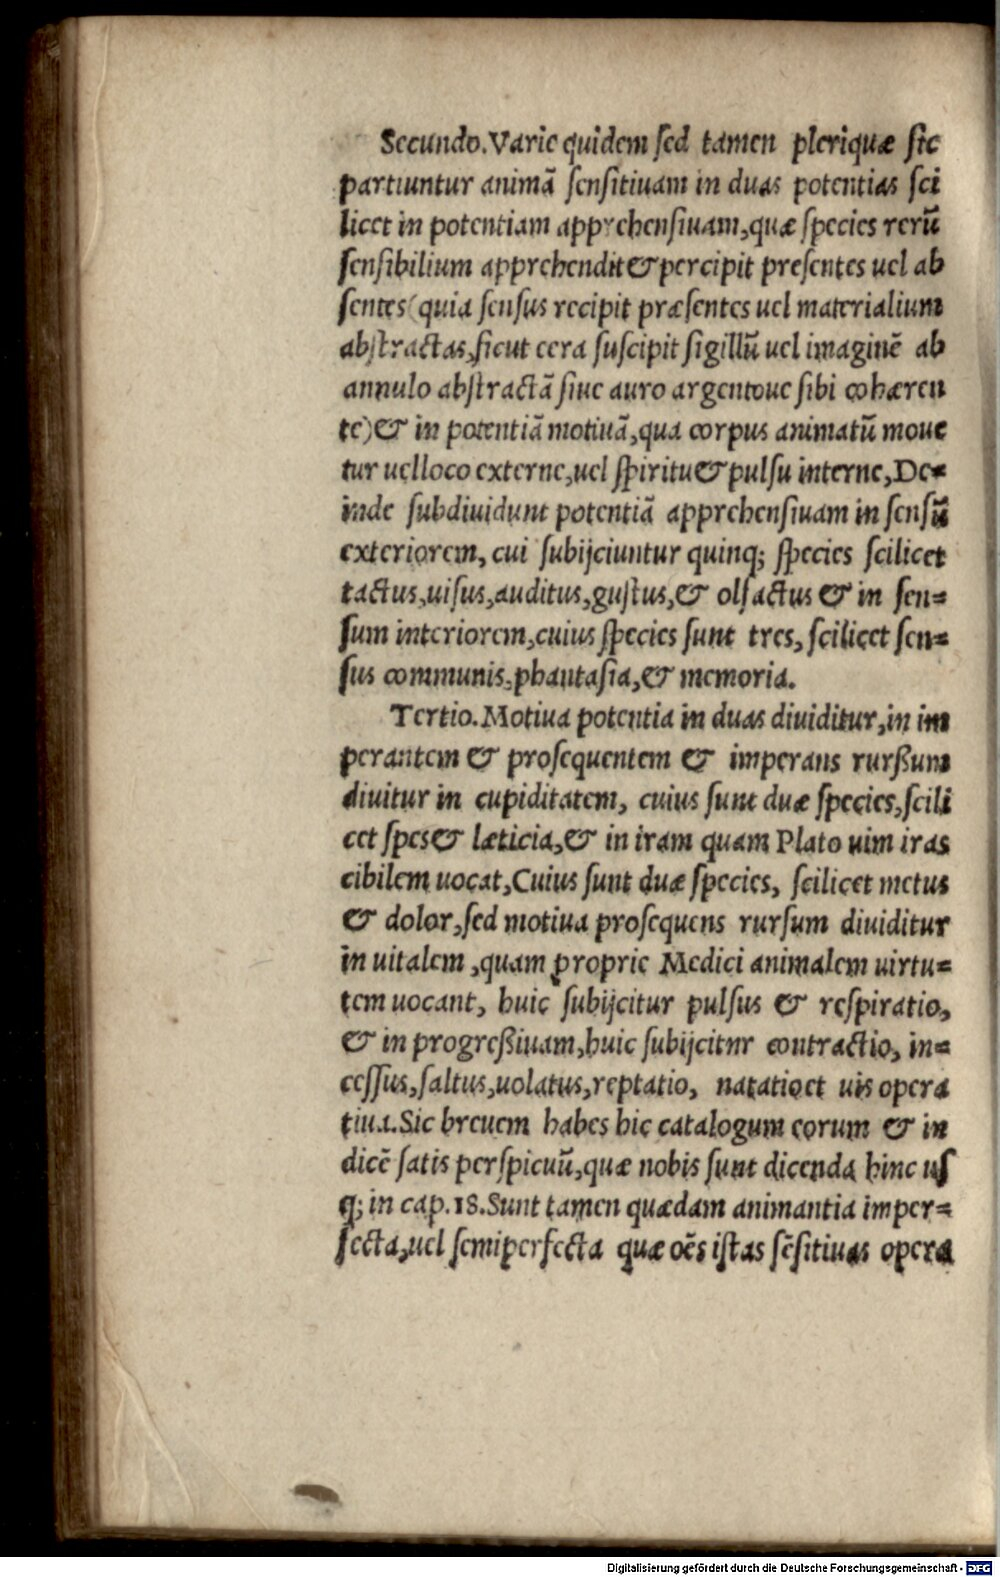 Secundo. Varie quidem sed tamen pleriquæ sic
partiuntur animā sensitiuam in duas potentias sci
licet in potentiam apprehensiuam, quæ species rerū
sensibilium apprehendit & percipit presentes uel ab
sentes (quia sensus recipit præsentes uel materialium
abstractas, sicut cera suscipit sigillū uel imaginē ab
annulo abstractā siue auro argentoue sibi cohæren
te) & in potentiā motiuā, qua corpus animatū moue
tur uel loco externe, uel spiritu & pulsu interne, De=
inde subdiuidunt potentiā apprehensiuam in sensū
exteriorem, cui subijciuntur quinq; species scilicet
tactus, uisus, auditus, gustus, & olfactus & in sen=
sum interiorem, cuius species sunt tres, scilicet sen=
sus communis, phantasia, & memoria.
Tertio. Motiua potentia in duas diuiditur, in im
perantem & prosequentem & imperans rurßum
diuitur in cupiditatem, cuius sunt duæ species, scili
cet spes & læticia, & in iram quam Plato uim iras
cibilem uocat, Cuius sunt duæ species, scilicet metus
& dolor, sed motiua prosequens rursum diuiditur
in uitalem, quam ꝓprie Medici animalem uirtu=
tem uocant, huic subijcitur pulsus & respiratio,
& in progreßiuam, huic subijcitnr contractio, in=
cessus, saltus, uolatus, reptatio, natatio et uis opera
tiua. Sic breuem habes hic catalogum eorum & in
dicē satis perspicuū, quæ nobis sunt dicenda hinc us
q; in cap. 18. Sunt tamen quædam animantia imper=
fecta, uel semiperfecta quæ oēs istas sēsitiuas opera
Digitalisierung gefördert durch die Deutsche Forschungsgemeinschaft - DFG